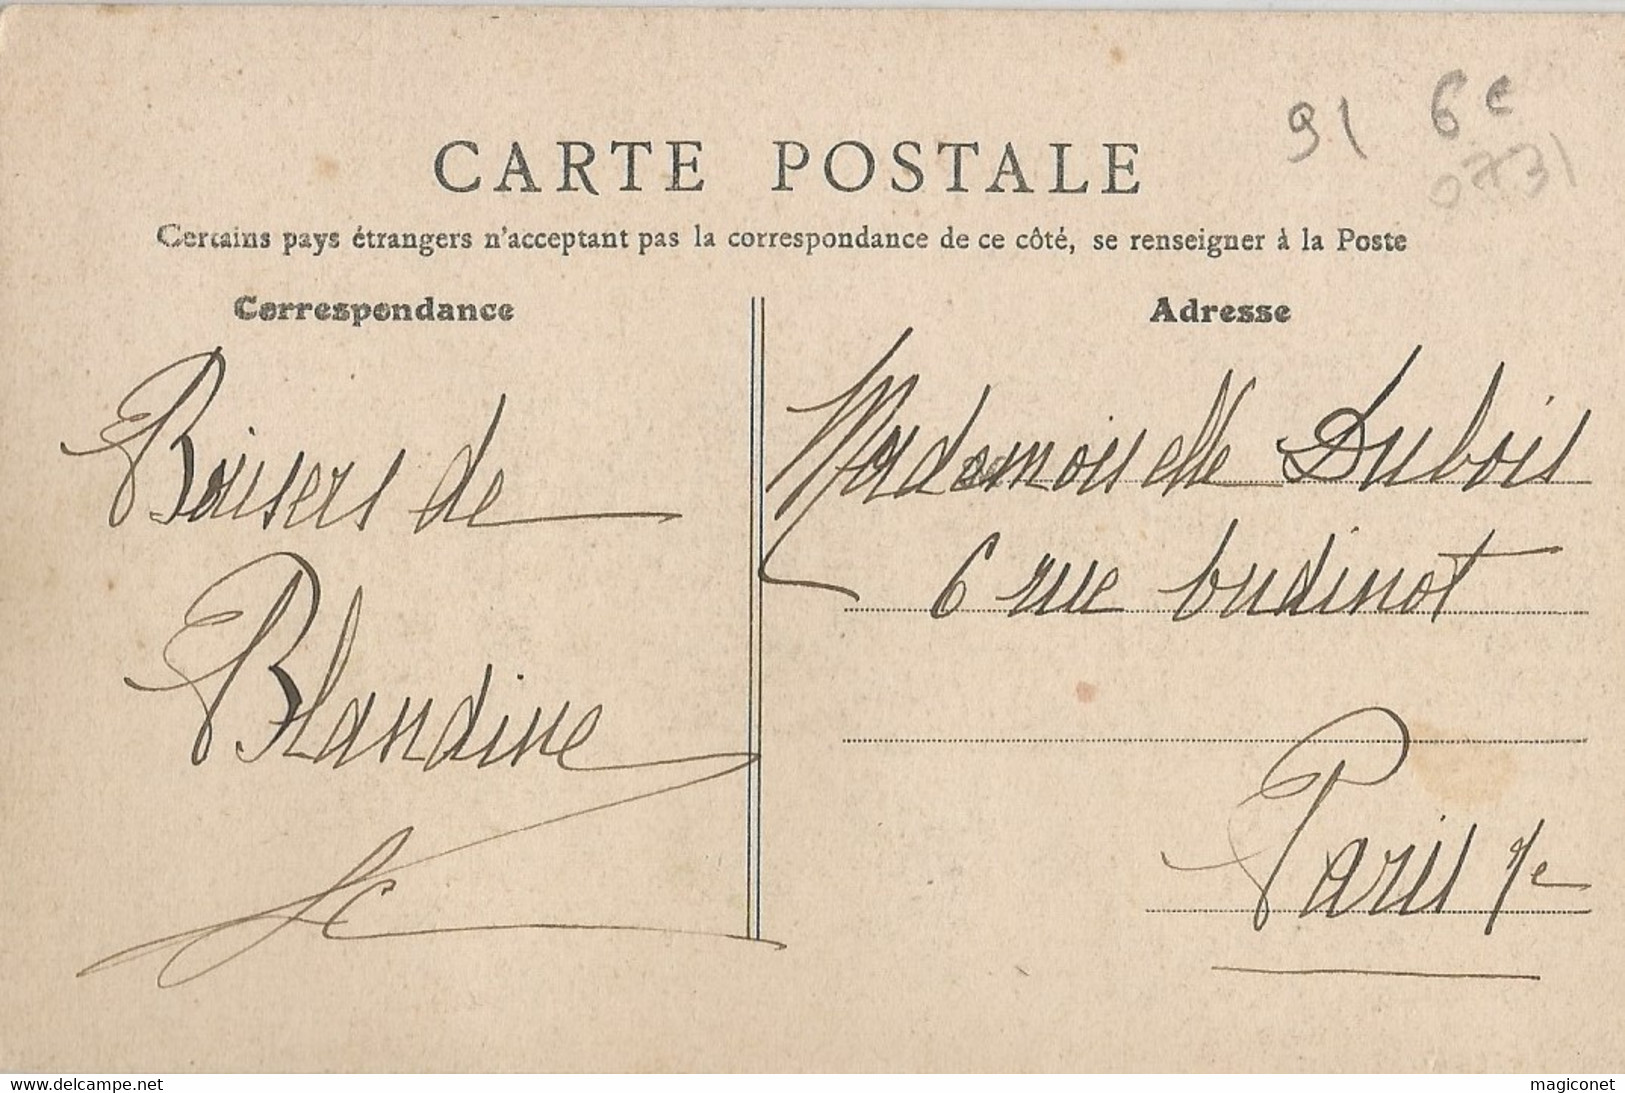 91 6e
0731
CARTE POSTALE
Certains pays étrangers n'acceptant pas la correspondance de ce côté, se renseigner à la Poste
Correspondance
Baisers de
Blandine
Adresse
Mademoiselle Dubois
6 rue budinot
Paris 7e
www.delcampe.net
magiconet